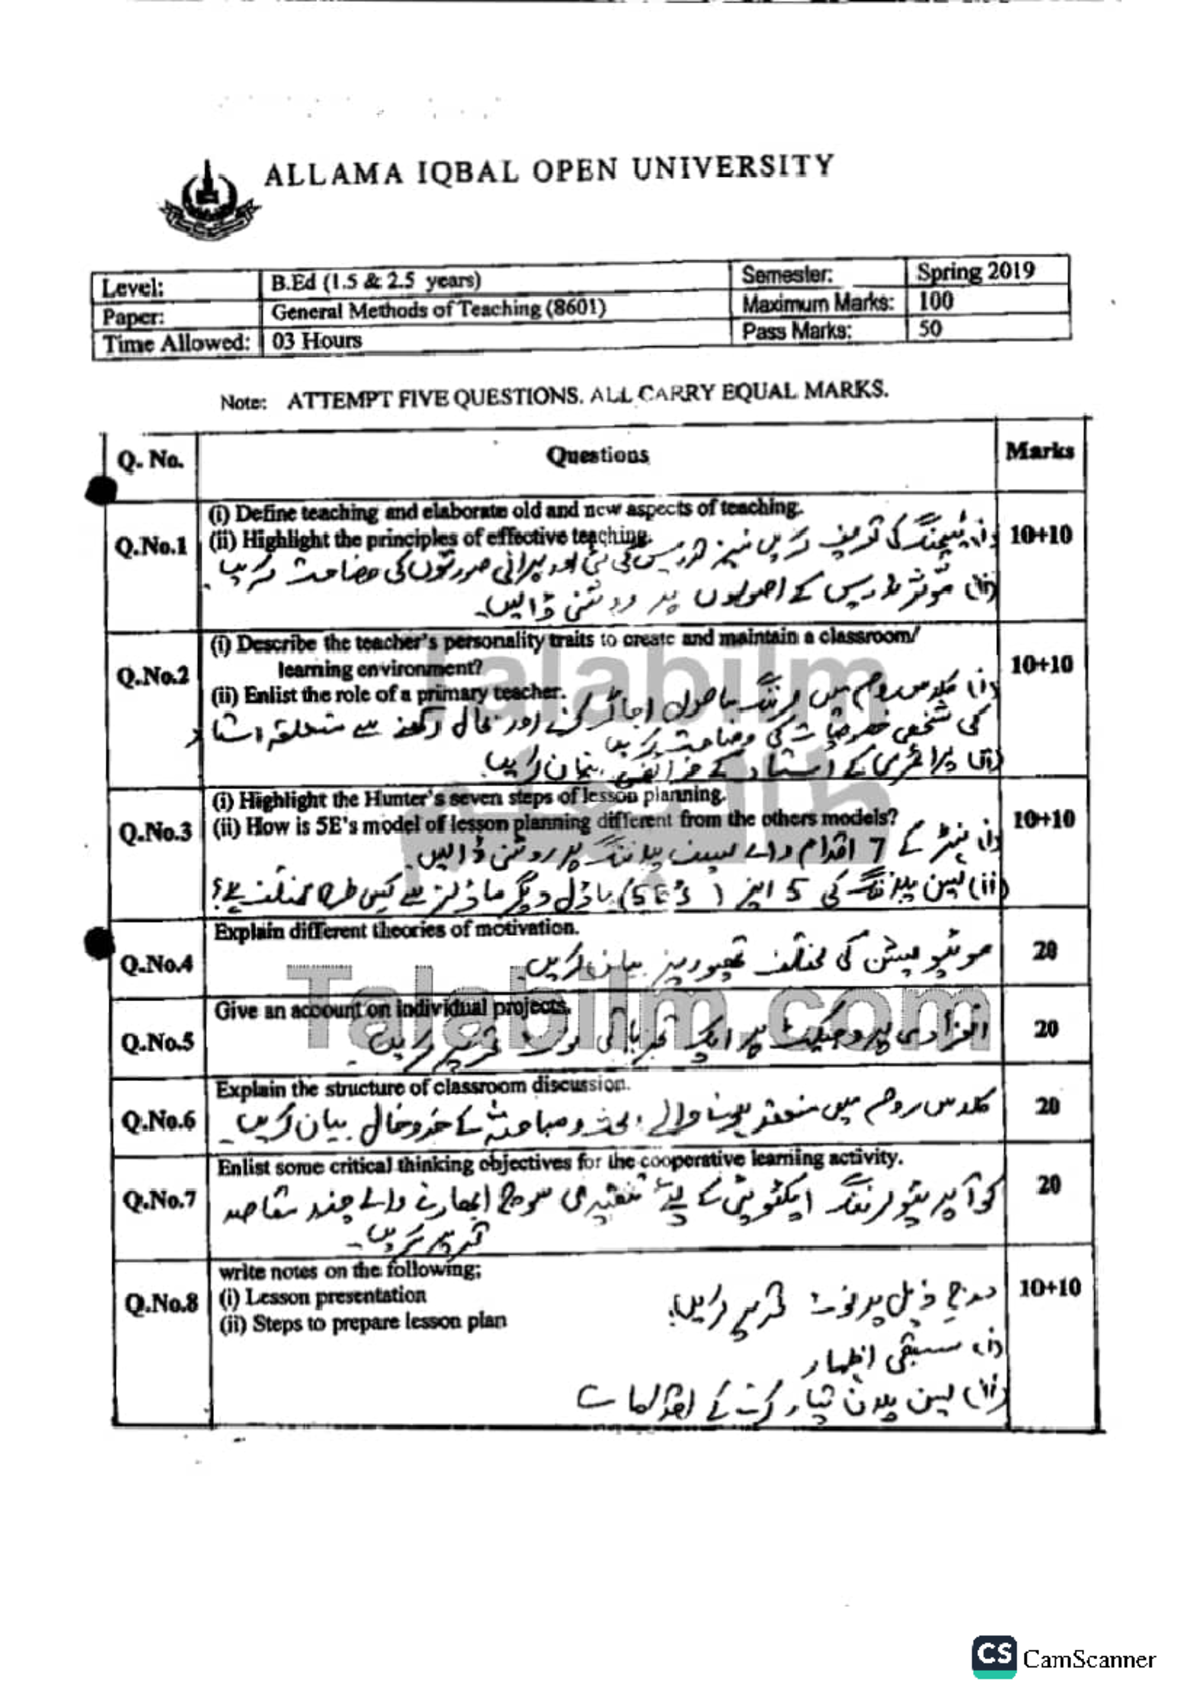 ALLAMA IQBAL OPEN UNIVERSITY
Level: B.Ed (1.5 & 2.5 years) Semester: Spring 2019
Paper: General Methods of Teaching (8601) Maximum Marks: 100
Time Allowed: 03 Hours Pass Marks: 50
Note: ATTEMPT FIVE QUESTIONS. ALL CARRY EQUAL MARKS.
Q. No. Questions Marks
(i) Define teaching and elaborate old and new aspects of teaching.
Q.No.1 (ii) Highlight the principles of effective teaching. (i) ٹیچنگ کی تعریف کریں نیز تدریس 10+10
کی نئی اور پرانی صورتوں کی وضاحت کریں۔
(ii) موثر تدریس کے اصولوں پر روشنی ڈالیں۔
(i) Describe the teacher's personality traits to create and maintain a classroom/
Q.No.2 learning environment? 10+10
(ii) Enlist the role of a primary teacher. (i) کلاس روم میں لرننگ ماحول اجاگر کرنے اور بحال رکھنے سے متعلقہ استاد
کی شخصی خصوصیات کی وضاحت کریں
(ii) پرائمری کے استاد کے فرائض بیان کریں۔
(i) Highlight the Hunter's seven steps of lesson planning.
Q.No.3 (ii) How is 5E's model of lesson planning different from the others models? 10+10
(i) ہنٹر کے 7 اقدام والے لیسن پلاننگ پر روشنی ڈالیں۔
(ii) لیسن پلاننگ کی 5 ایز (5E's) ماڈل دیگر ماڈلز سے کیس طرح مختلف ہے؟
Explain different theories of motivation.
Q.No.4 موٹیویشن کی مختلف تھیوریز بیان کریں۔ 20
Give an account on individual projects.
Q.No.5 انفرادی پروجیکٹ پر ایک نوٹ تحریر کریں۔ 20
Explain the structure of classroom discussion.
Q.No.6 کلاس روم میں منعقد ہونے والے بحث و مباحثہ کے خدوخال بیان کریں۔ 20
Enlist some critical thinking objectives for the cooperative learning activity.
Q.No.7 کوآپریٹو لرننگ ایکٹوٹی کے لیے تنقیدی سوچ ابھارنے والے چند مقاصد 20
تحریر کریں۔
write notes on the following;
Q.No.8 (i) Lesson presentation درج ذیل پر نوٹ تحریر کریں۔ 10+10
(ii) Steps to prepare lesson plan
(i) سبقی اظہار
(ii) لیسن پلان تیار کرنے کے اقدامات
Talabilm
Talabilm.com
CS CamScanner